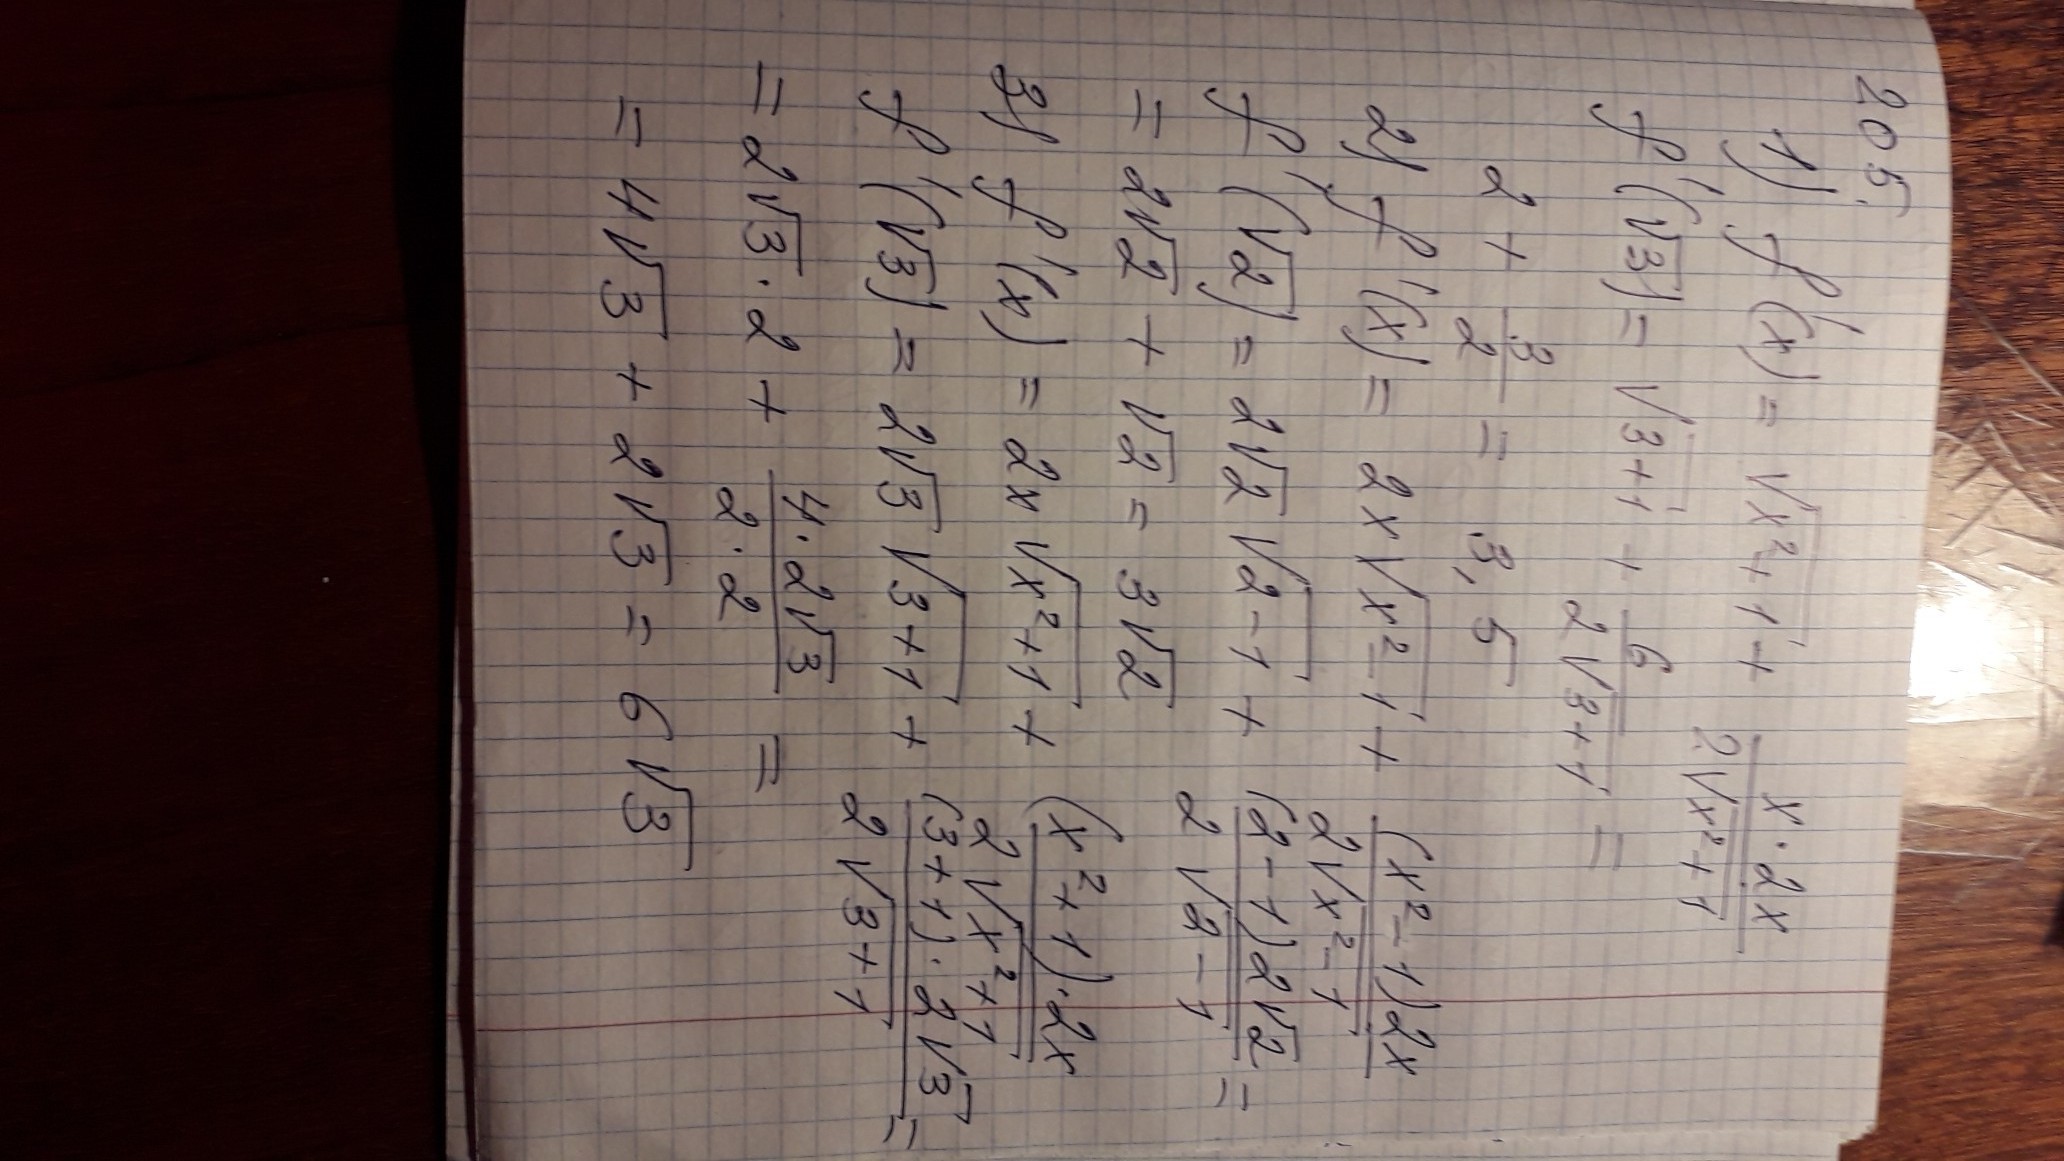 205.
1) f'(x) = √(x²+1) + (x·2x)/(2√(x²+1))
f'(√3) = √(3+1) + 6/(2√(3+1)) =
2 + 3/2 = 3,5
2) f'(x) = 2x√(x²-1) + ((x²-1)2x)/(2√(x²-1))
f'(√2) = 2√2√(2-1) + ((2-1)2√2)/(2√(2-1)) =
= 2√2 + √2 = 3√2
3) f'(x) = 2x√(x²+1) + ((x²+1)·2x)/(2√(x²+1))
f'(√3) = 2√3√(3+1) + ((3+1)·2√3)/(2√(3+1)) =
= 2√3·2 + (4·2√3)/(2·2) =
= 4√3 + 2√3 = 6√3